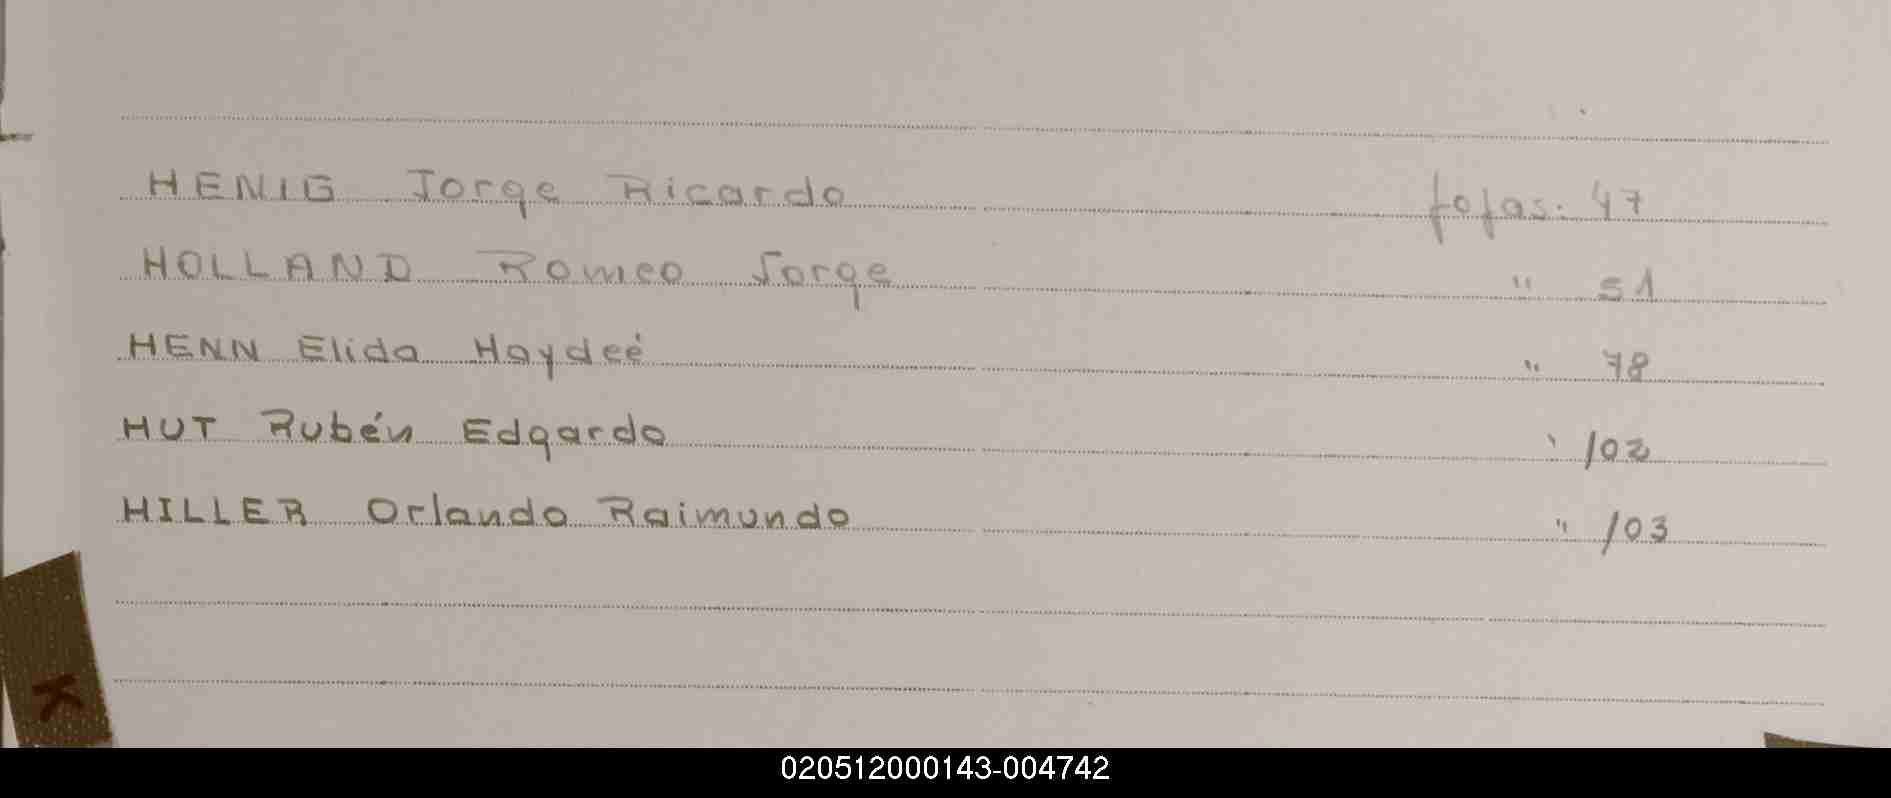 HENIG Jorge Ricardo fojas. 47
HOLLAND Romeo Jorge " 51
HENN Elida Haydeé " 78
HUT Rubén Edgardo ' 102
HILLER Orlando Raimundo " 103
K
020512000143-004742